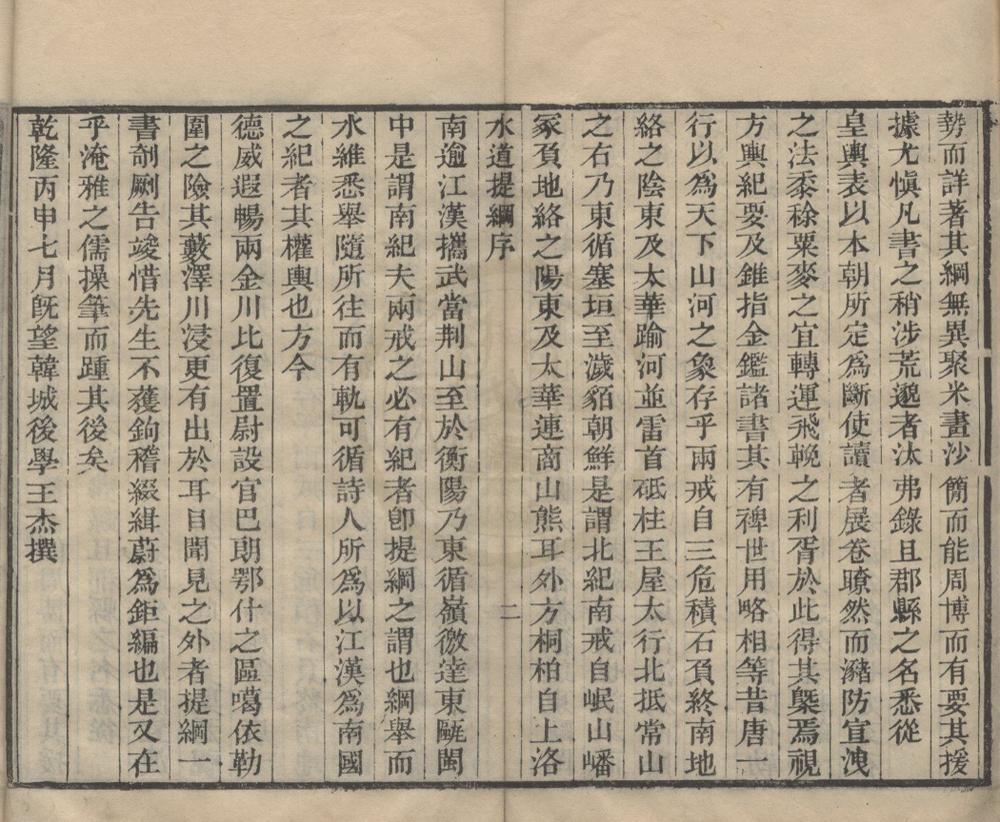 勢而詳著其綱無異聚米畫沙簡而能周博而有要其援
據尤愼凡書之稍涉荒邈者汰弗錄且郡縣之名悉從
皇輿表以本朝所定爲斷使讀者展卷暸然而瀦防宣洩
之法黍稌粟麥之宜轉運飛輓之利胥於此得其槩焉視
方輿紀要及錐指金鑑諸書其有裨世用略相等昔唐一
行以爲天下山河之象存乎兩戒自三危積石負終南地
絡之陰東及太華踰河並雷首砥柱王屋太行北抵常山
之右乃東循塞垣至濊貊朝鮮是謂北紀南戒自岷山嶓
冢負地絡之陽東及太華連商山熊耳外方桐柏自上洛
水道提綱序
二
南逾江漢攜武當荆山至於衡陽乃東循嶺徼達東甌閩
中是謂南紀夫兩戒之必有紀者卽提綱之謂也綱舉而
水維悉舉隨所往而有軌可循詩人所爲以江漢爲南國
之紀者其權輿也方今
德威遐暢兩金川比復置尉設官巴朗鄂什之區噶依勒
圍之險其藪澤川浸更有出於耳目聞見之外者提綱一
書剞劂告竣惜先生不獲鉤稽綴緝蔚爲鉅編也是又在
乎淹雅之儒操筆而踵其後矣
乾隆丙申七月旣望韓城後學王杰撰